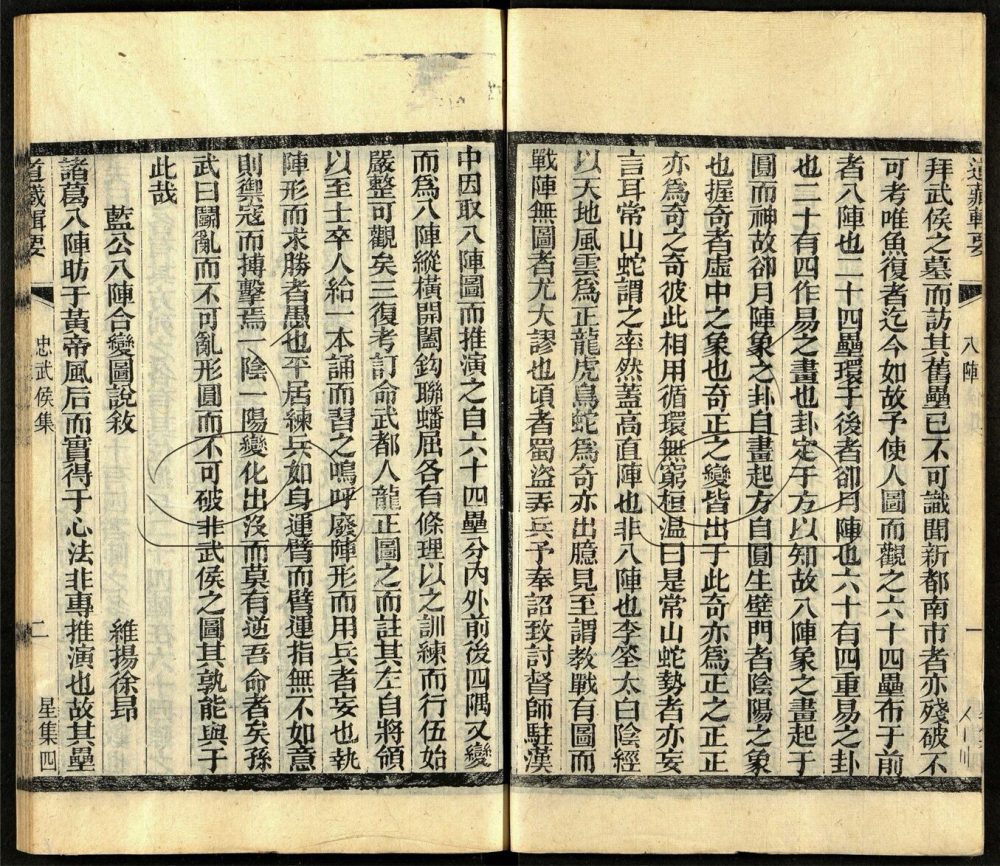 道藏輯要 八陣 一
拜武侯之墓而訪其舊壘已不可識聞新都南市者亦殘破不
可考唯魚復者迄今如故予使人圖而觀之六十四壘布于前
者八陣也二十四壘環于後者卻月陣也六十有四重易之卦
也二十有四作易之畫也卦定于方以知故八陣象之畫起于
圓而神故卻月陣象之卦自畫起方自圓生壁門者陰陽之象
也握奇者虛中之象也奇正之變皆出于此奇亦為正之正正
亦為奇之奇彼此相用循環無窮桓温曰是常山蛇勢者亦妄
言耳常山蛇謂之率然蓋高直陣也非八陣也李筌太白陰經
以天地風雲為正龍虎鳥蛇為奇亦出臆見至謂教戰有圖而
戰陣無圖者尤大謬也頃者蜀盜弄兵予奉詔致討督師駐漢
中因取八陣圖而推演之自六十四壘分內外前後四隅又變
而為八陣縱橫開闔鈎聯蟠屈各有條理以之訓練而行伍始
嚴整可觀矣三復考訂命武都人龍正圖之而註其左自將領
以至士卒人給一本誦而習之嗚呼廢陣形而用兵者妄也執
陣形而求勝者愚也平居練兵如身運臂而臂運指無不如意
則禦寇而搏擊焉一陰一陽變化出沒而莫有逆吾命者矣孫
武曰鬬亂而不可亂形圓而不可破非武侯之圖其孰能與于
此哉
藍公八陣合變圖說敘 維揚徐昂
諸葛八陣昉于黃帝風后而實得于心法非專推演也故其壘
道藏輯要 忠武侯集 二 星集四